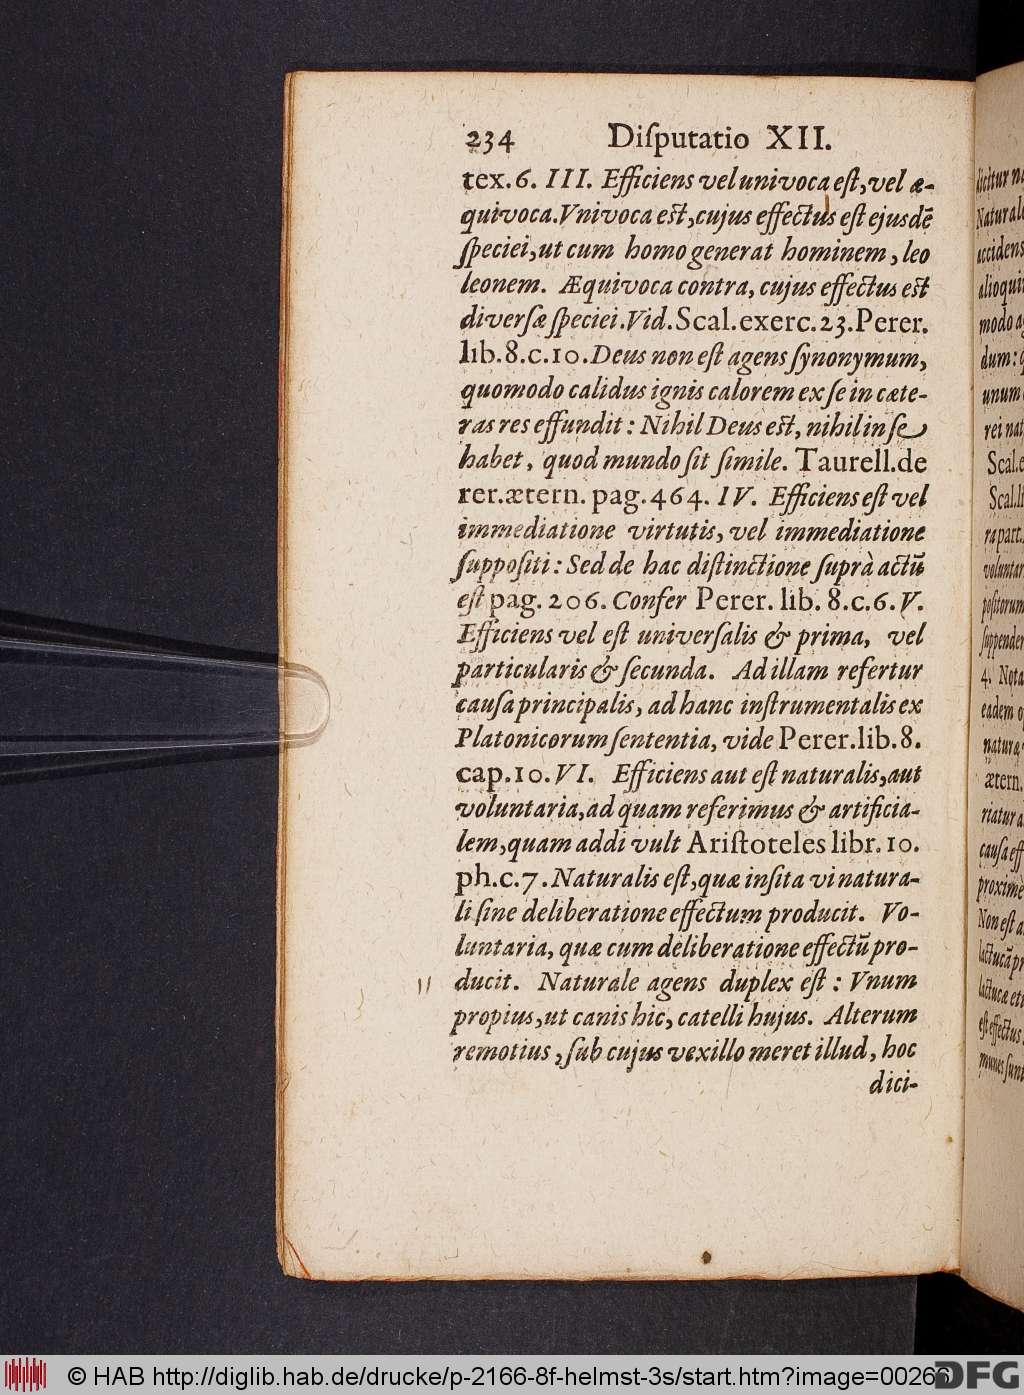 234 Diſputatio XII.
tex.6. III. Efficiens vel univoca eſt, vel æ-
quivoca. Vnivoca eſt, cujus effectus eſt ejusdē
ſpeciei, ut cum homo generat hominem, leo
leonem. Æquivoca contra, cujus effectus eſt
diverſæ ſpeciei. Vid. Scal. exerc. 23. Perer.
lib. 8. c. 10. Deus non eſt agens ſynonymum,
quomodo calidus ignis calorem ex ſe in cæte-
ras res effundit: Nihil Deus eſt, nihil in ſe
habet, quod mundo ſit ſimile. Taurell. de
rer. ætern. pag. 464. IV. Efficiens eſt vel
immediatione virtutis, vel immediatione
ſuppoſiti: Sed de hac diſtinctione ſuprà actū
eſt pag. 206. Confer Perer. lib. 8. c. 6. V.
Efficiens vel eſt univerſalis & prima, vel
particularis & ſecunda. Ad illam refertur
cauſa principalis, ad hanc inſtrumentalis ex
Platonicorum ſententia, vide Perer. lib. 8.
cap. 10. VI. Efficiens aut eſt naturalis, aut
voluntaria, ad quam referimus & artificia-
lem, quam addi vult Ariſtoteles libr. 10.
ph. c. 7. Naturalis eſt, quæ inſita vi natura-
li ſine deliberatione effectum producit. Vo-
luntaria, quæ cum deliberatione effectū pro-
ducit. Naturale agens duplex eſt: Vnum
propius, ut canis hic, catelli hujus. Alterum
remotius, ſub cujus vexillo meret illud, hoc
dici-
dicitur
Natural
accidens
alioqui
modo
dum:
unum
rei nat
Scal.
Scal. li
ra part.
voluntar
poſitorum
ſuppender
4. Nota
eadem
naturæ,
ætern.
riatur
cauſa eff
proximè
Non eſt
lactucā pr
lactucæ
eſt effectus
munes ſunt
© HAB http://diglib.hab.de/drucke/p-2166-8f-helmst-3s/start.htm?image=00266
DFG